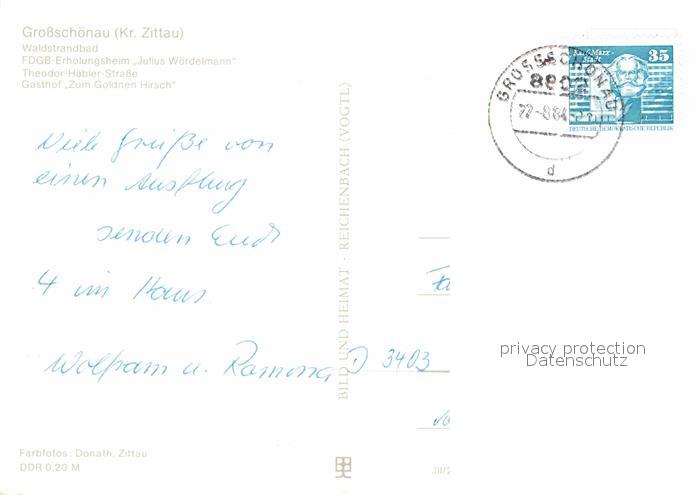 Großschönau (Kr. Zittau)
Waldstrandbad
FDGB-Erholungsheim „Julius Wördelmann"
Theodor-Häbler-Straße
Gasthof „Zum Goldnen Hirsch"
Karl-Marx-
Stadt
35
DEUTSCHE DEMOKRATISCHE REPUBLIK
GROSSSCHÖNAU
8802
d
Viele Grüße von
einen Ausflug
senden Euch
4 im Haus
Wolfram u. Ramona
BILD UND HEIMAT · REICHENBACH (VOGTL)
D 3403
privacy protection
Datenschutz
Farbfotos: Donath, Zittau
DDR 0,20 M